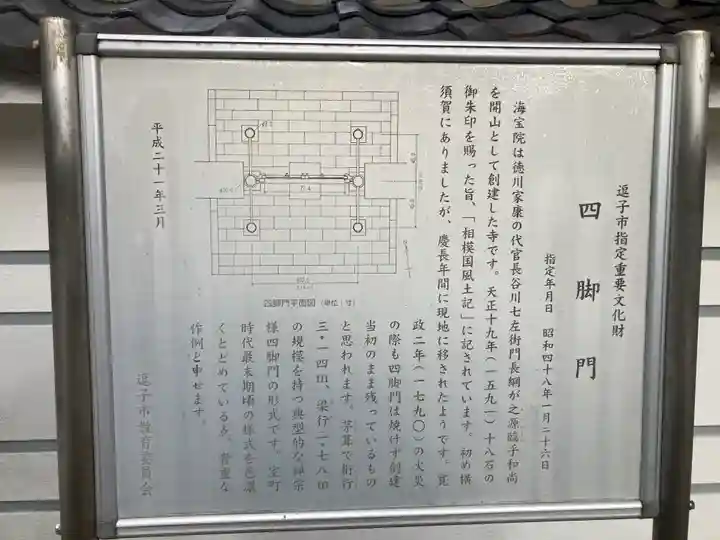 逗子市指定重要文化財
四脚門
指定年月日　昭和四十八年一月二十六日
海宝院は徳川家康の代官長谷川七左衛門長綱が之源臨乎和尚
を開山として創建した寺です。天正十九年（一五九一）十八石の
御朱印を賜った旨、「相模国風土記」に記されています。初め横
須賀にありましたが、慶長年間に現地に移されたようです。寛
政二年（一七九〇）の火災
の際も四脚門は焼けず創建
当初のまま残っているもの
と思われます。茅葺で桁行
三・一四m、梁行二・七八m
の規模を持つ典型的な禅宗
様四脚門の形式です。室町
時代最末期頃の様式を色濃
くとどめている点、貴重な
作例と申せます。
四脚門平面図（単位：寸）
平成二十一年三月
逗子市教育委員会